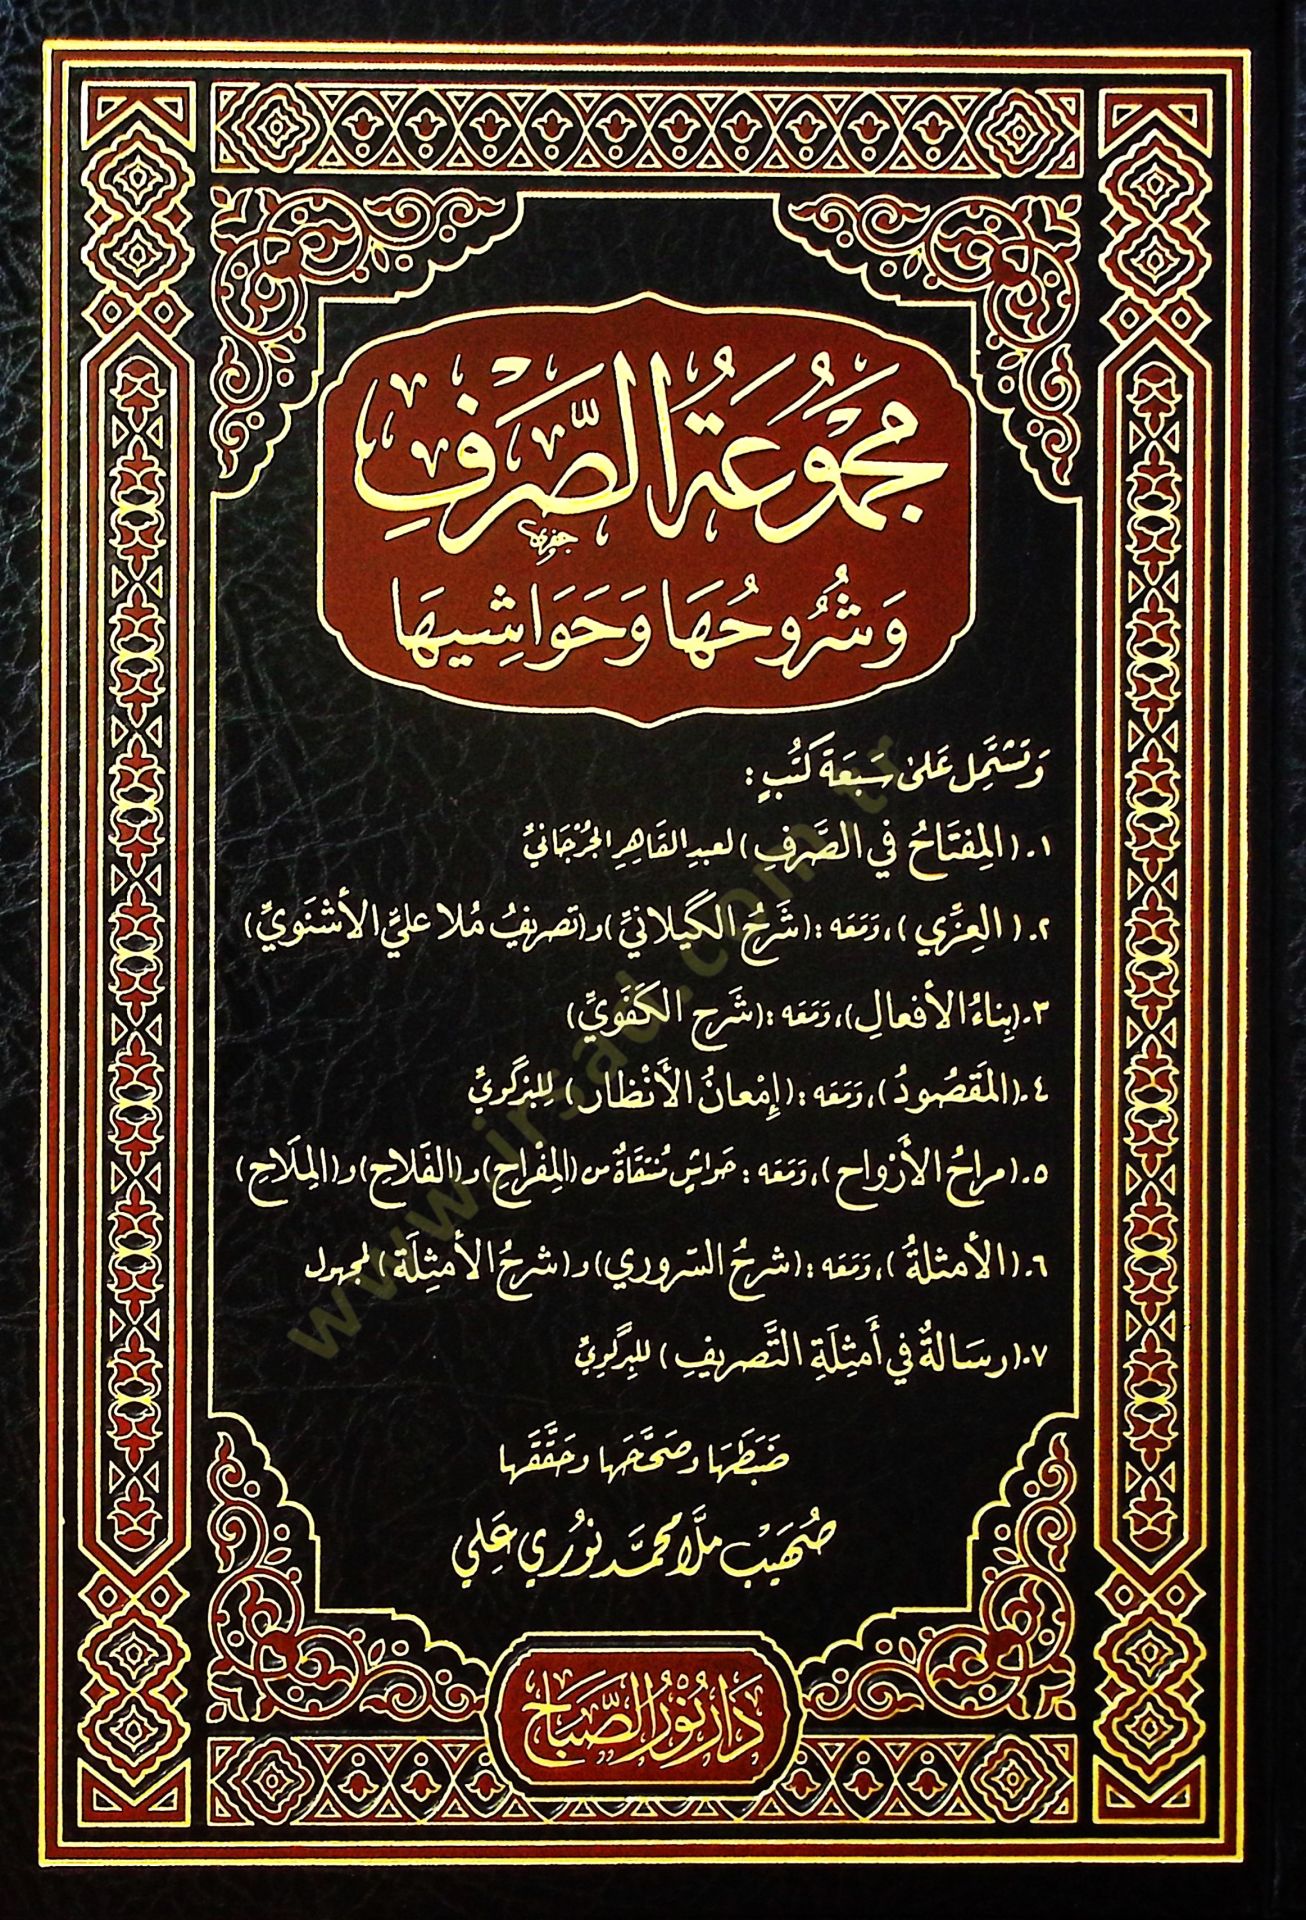 مَجْمُوعَةُ الصَّرْفِ
وَشُرُوحُهَا وَحَوَاشِيهَا
وَتَشْتَمِل عَلى سَبعَة كتُبٍ :
١. (المِفتَاحُ في الصَّرفِ) لعبدِ القَاهِرِ الجُرْجَانيِّ
٢. (العِزِّي)، وَمَعَه : (شَرحُ الكَيلانيِّ) و(تصريفُ مُلا عليٍّ الأشنَويِّ)
٣. (بِناءُ الأفعالِ)، وَمَعَه : (شَرح الكَفَويِّ)
٤. (المَقصُودُ)، وَمَعَه : (إِمْعانُ الأَنْظار) لِلبَركَويِّ
٥. (مراحُ الأَرْواح)، وَمَعَه : حَواشٍ مُنتقَاةٌ من (المِفْراحِ) و(الفَلاحِ) و(المِلَاحِ)
٦. (الأمثلةُ)، وَمَعَه : (شرحُ السّروري) و(شرحُ الأمثِلَة) لمجهول
٧. (رسَالةٌ في أَمثِلَةِ التَّصريفِ) للبِركَويِّ
ضَبَطَهَا وصَحَّحَها وحَقَّقَها
صُهَيْب ملَّا محمَّد نوُري عَلي
دَار نُوْر الصَّبَاح
www.irsad.com.tr